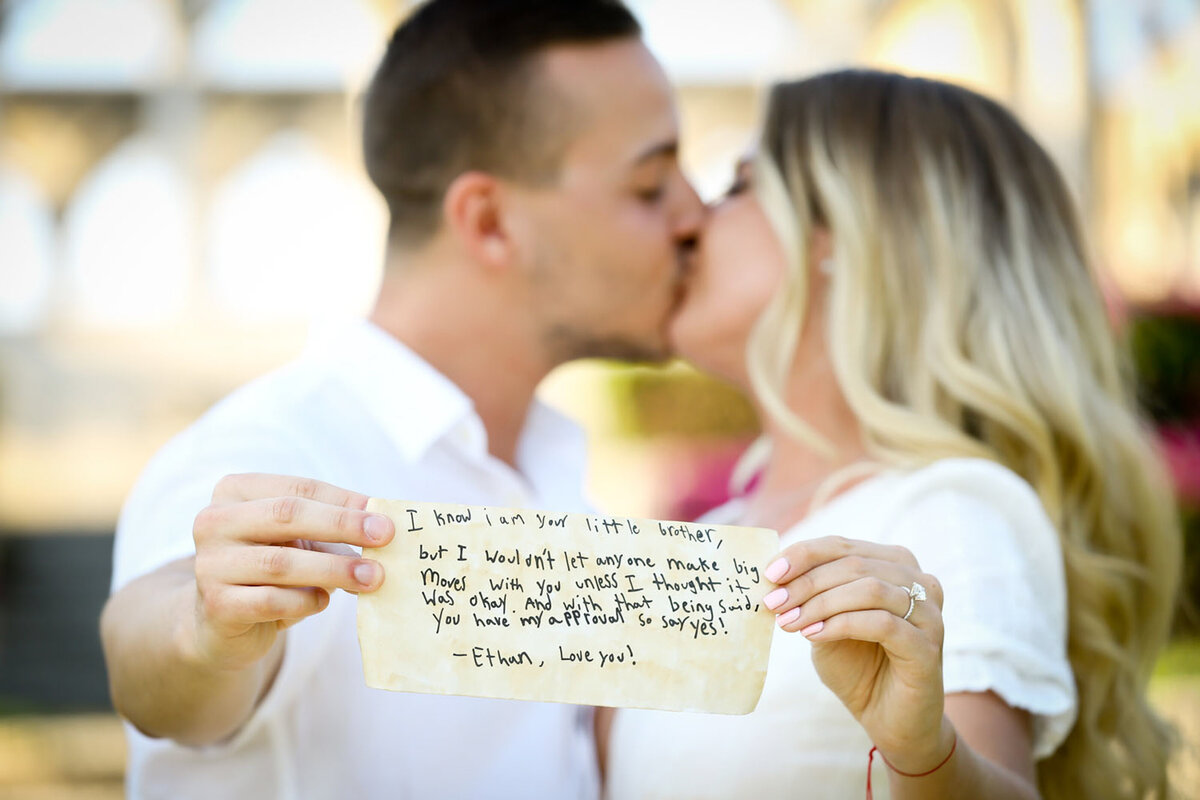 I know i am your little brother,
but I wouldn't let anyone make big
moves with you unless I thought it
was okay. And with that being said,
you have my approval so say yes!
-Ethan, Love you!